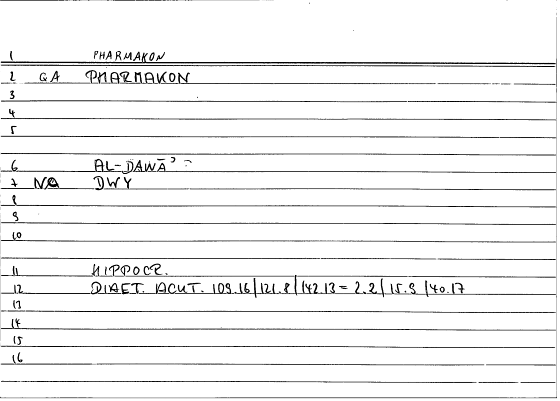 1 PHARMAKON
2 GA PHARMAKON
3
4
5
6 AL-DAWĀʾ
7 NO DWY
8
9
10
11 HIPPOCR.
12 DIAET. ACUT. 109.16|121.8|142.13 = 2.2|15.9|40.17
13
14
15
16